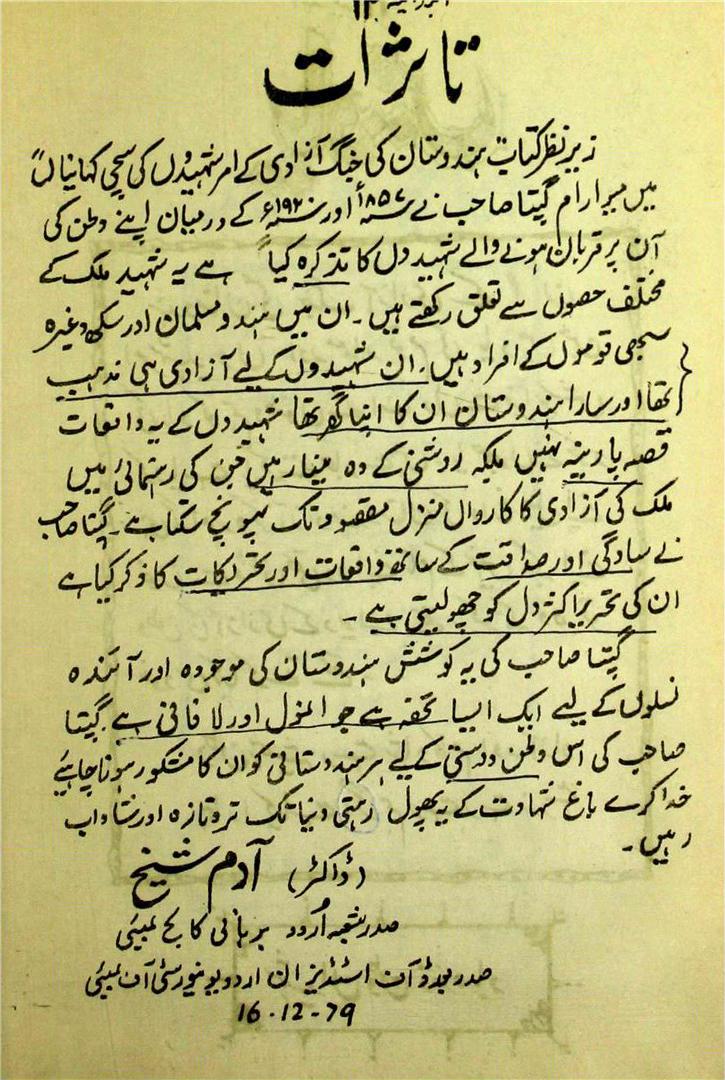 ۱۲
تاثرات
زیر نظر کتاب ہندوستان کی جنگ آزادی کے امر شہیدوں کی سچی کہانیاں"
میں میوا رام گپتا صاحب نے ۱۸۵۷ء اور ۱۹۲۰ء کے درمیان اپنے وطن کی
آن پر قربان ہونے والے شہیدوں کا تذکرہ کیا" ہے یہ شہید ملک کے
مختلف حصوں سے تعلق رکھتے ہیں۔ ان میں ہندو مسلمان اور سکھ وغیرہ
سبھی قوموں کے افراد ہیں۔ ان شہیدوں کے لیے آزادی ہی مذہب
تھا اور سارا ہندوستان ان کا اپنا گھر تھا شہیدوں کے یہ واقعات
قصہ پارینہ نہیں بلکہ روشنی کے وہ مینار ہیں جن کی رہنمائی میں
ملک کی آزادی کا کارواں منزل مقصود تک پہونچ سکتا ہے۔ گپتا صاحب
نے سادگی اور صداقت کے ساتھ واقعات اور تحریکات کا ذکر کیا ہے
ان کی تحریر اکثر دل کو چھو لیتی ہے۔
گپتا صاحب کی یہ کوشش ہندوستان کی موجودہ اور آئندہ
نسلوں کے لیے ایک ایسا تحفہ ہے جو انمول اور لافانی ہے۔ گپتا
صاحب کی اس وطن دوستی کے لیے ہر ہندوستانی کو ان کا مشکور ہونا چاہیئے
خدا کرے باغ شہادت کے یہ پھول رہتی دنیا تک تروتازہ اور شاداب
رہیں۔
(ڈاکٹر) آدم شیخ
صدر شعبہ اُردو برہانی کالج بمبئی
صدر بورڈ آف اسٹڈیز ان اردو یونیورسٹی آف بمبئی
16-12-79